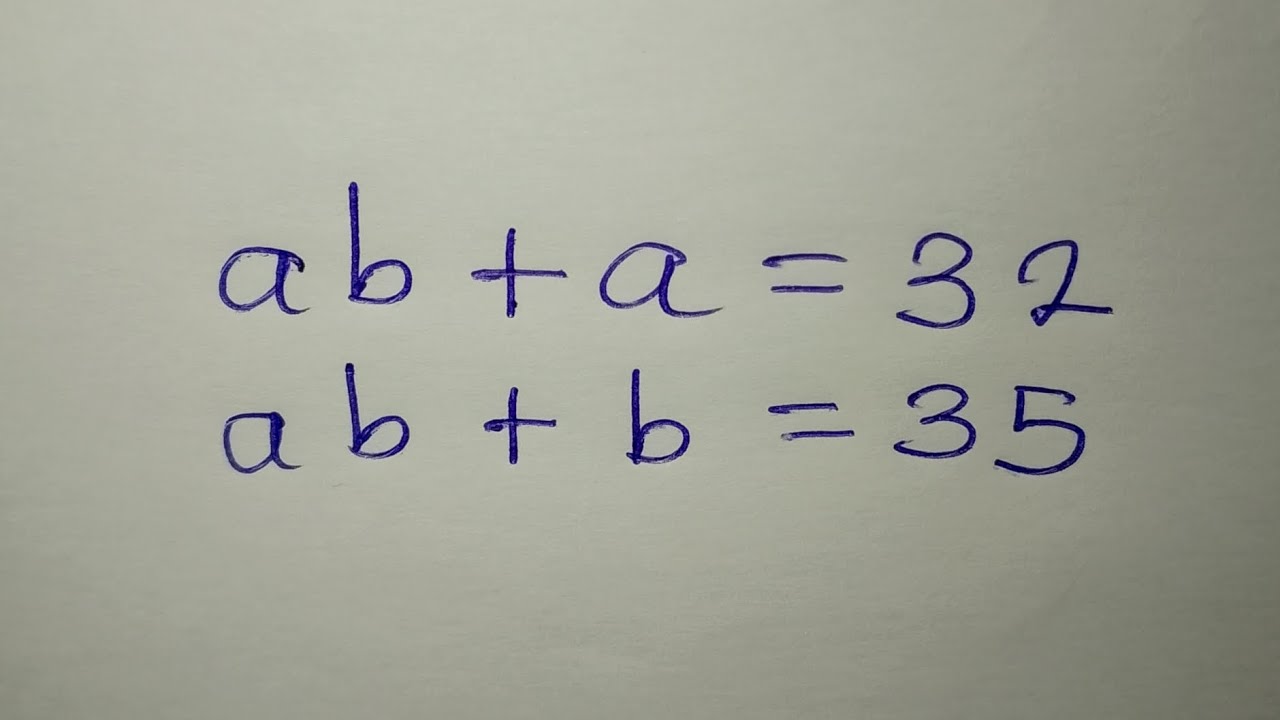 ab + a = 32
ab + b = 35